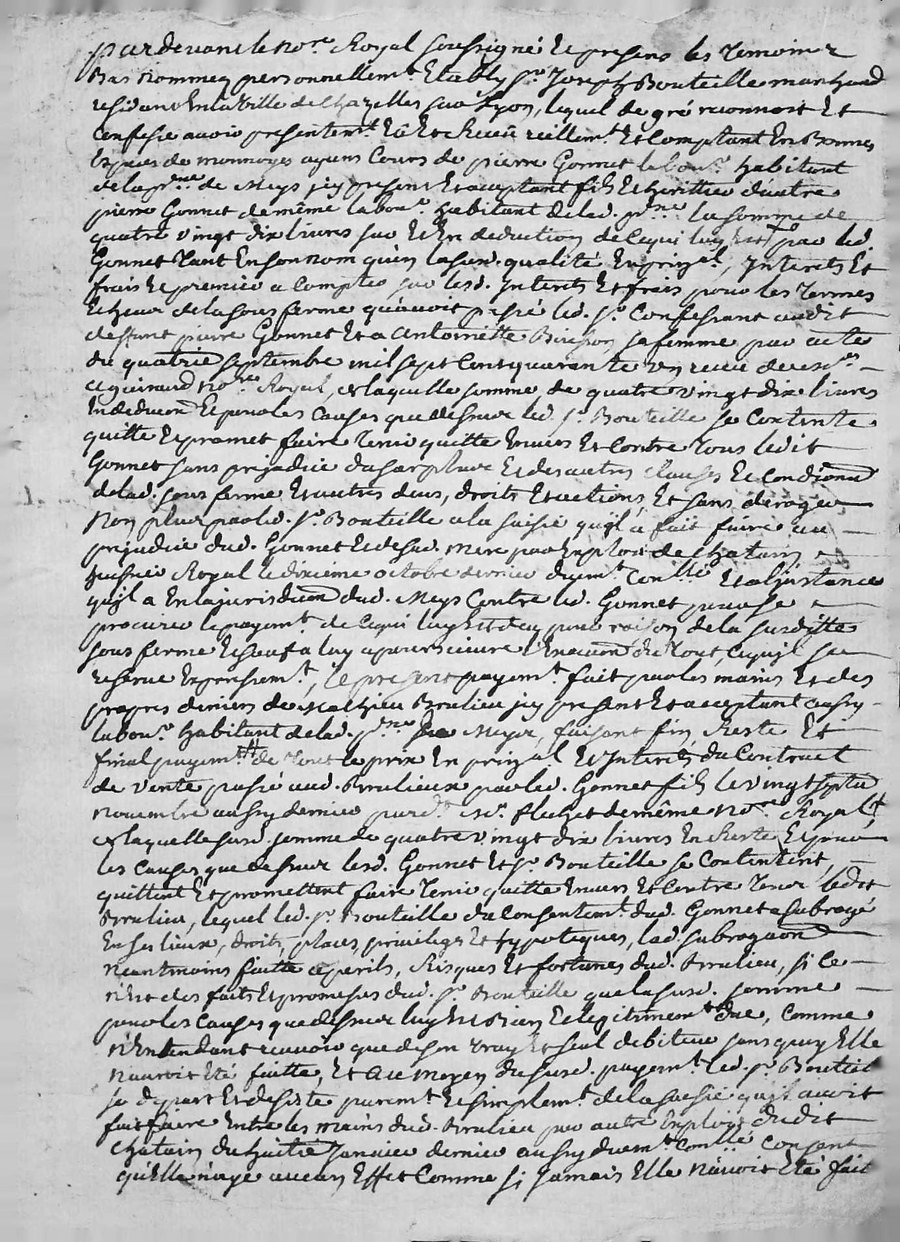 pardevant le no.re Royal soussigné et presens les temoins
Bas nommez personnellem.t Etably s.r Joseph Bouteille marchand
residant En la ville de Chazelles sur Lyon, lequel de gré reconnoit Et
confesse avoir presentem.t Eû Et Receu réellem.t Et Comptant En Bonnes
Espèces de monnoyes ayans Cours de pierre Gonnet labou.r habitant
de la p.sse de Meys icy present Et acceptant fils Et heritier dautre
pierre Gonnet de même labou.r habitant de lad. p.sse la somme de
quatre vingt dix livres sur Et En deduction de Ce qui luy Est par led.
Gonnet tant En son nom qu'en lasusd. qualité En prizal, Interets Et
frais Et premier a Compter sur lesd. Interets Et frais pour les termes
Echeus de la sous ferme qu'avoit passé led. s.r Confessant audit
deffunt pierre Gonnet Et a Antoinette Buisson sa femme par acte
du quatrie septembre mil sept Cent quarante un receu devers
no.re Royal, de laquelle somme de quatre vingt dix livres
En deduction Et pour les Causes que dessus led. s.r Bouteille se Contente
quitte Et promet faire tenir quitte Envers Et Contre tous ledit
Gonnet sans prejudice du surplus Et des autres clauses Et Conditions
de lad. sous ferme Et autres deus, droits Et actions, Et sans deroger
Non plus par led. s.r Bouteille a la saisie qu'il a fait faire au
prejudice dud. Gonnet Et de sad. mere par Exploit de Chatain
huissier Royal le dixième octobre dernier duem.t Conllé Et a l'instance
qu'il a En la jurisdiction dud. Meys Contre led. Gonnet pour se
procurer le payem.t de Ce qui luy Est deu pour raison de la susditte
sous ferme Et sauf a luy a poursuivre l'Enaction du tout, Ce qu'il se
reserve Expressem.t, Le present payem.t fait par les mains Et des
propres deniers de Mathieu Brulieu icy present Et acceptant aussy
labou.r habitant de lad. p.sse de Meys, faisant fin, Reste Et
final payem.t de tout le prix En prizal Et Interets du Contract
de vente passé aud. Brulieux par led. Gonnet fils le vingt sept
novembre aussy dernier pard.t M.e Flachet de même no.re Royal
de laquelle susd. somme de quatre vingt dix livres En Reste Et pour
les Causes que dessus lesd. Gonnet Et s.r Bouteille se Contentent,
quittent Et promettent faire tenir quitte Envers Et Contre tous ledit
Brulieu, lequel led. s.r Bouteille du Consentem.t dud. Gonnet a subrogé
En ses lieux, droits, places, privileges Et hypoteques, lad. subrogation
neantmoins faitte a perils, Risques Et fortunes dud. Brulieu, si Ce
n'est des faits Et promesses dud. s.r Bouteille que la susd. somme
pour les Causes que dessus luy Est Bien Et legitimem.t due, Comme
n'Entendant recevoir que de son vray Et seul debiteur sans quoy Elle
n'auroit Eté faitte, Et Au moyen du susd. payem.t led. s.r Bouteille
se depart Et desiste purem.t Et simplem.t de la saisie qu'il avoit
fait faire Entre les mains dud. Brulieu par autre Exploit dudit
Chatain du huitie Janvier dernier aussy duem.t Conllé Consent
qu'Elle n'aye aucun Effet Comme si Jamais Elle n'avoit Eté fait